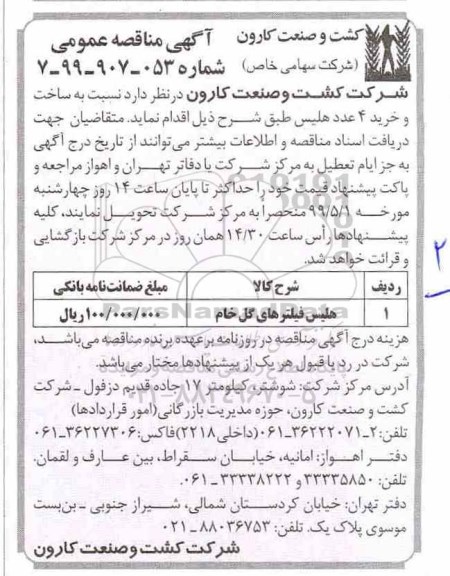 کشت و صنعت کارون
(شرکت سهامی خاص)
آگهی مناقصه عمومی
شماره ۰۵۳-۹۰۷-۹۹-۷
شرکت کشت وصنعت کارون در نظر دارد نسبت به ساخت
و خرید ۴ عدد هلیس طبق شرح ذیل اقدام نماید. متقاضیان جهت
دریافت اسناد مناقصه و اطلاعات بیشتر می‌توانند از تاریخ درج آگهی
به جز ایام تعطیل به مرکز شرکت یا دفاتر تهران و اهواز مراجعه و
پاکت پیشنهاد قیمت خود را حداکثر تا پایان ساعت ۱۴ روز چهارشنبه
مورخه ۹۹/۵/۱ منحصراً به مرکز شرکت تحویل نمایند، کلیه
پیشنهادها رأس ساعت ۱۴/۳۰ همان روز در مرکز شرکت بازگشایی
و قرائت خواهد شد.
ردیف شرح کالا مبلغ ضمانت‌نامه بانکی
۱ هلیس فیلترهای گل خام ۱۰۰/۰۰۰/۰۰۰ ریال
هزینه درج آگهی مناقصه در روزنامه برعهده برنده مناقصه می‌باشد،
شرکت در رد یا قبول هر یک از پیشنهادها مختار می‌باشد.
آدرس مرکز شرکت: شوشتر، کیلومتر ۱۷ جاده قدیم دزفول - شرکت
کشت و صنعت کارون، حوزه مدیریت بازرگانی(امور قراردادها)
تلفن: ۲-۳۶۲۲۲۰۷۱-۰۶۱(داخلی ۲۲۱۸)فاکس: ۳۶۲۲۷۳۰۶-۰۶۱
دفتر اهواز: امانیه، خیابان سقراط، بین عارف و لقمان.
تلفن: ۳۳۳۳۵۸۵۰ و ۳۳۳۳۸۲۲۲-۰۶۱.
دفتر تهران: خیابان کردستان شمالی، شیراز جنوبی - بن‌بست
موسوی پلاک یک. تلفن: ۸۸۰۳۶۷۵۳-۰۲۱
شرکت کشت وصنعت کارون
۲
ParsNamadData
۰۲۱-۸۸۳۴۹۶۷۰-۵